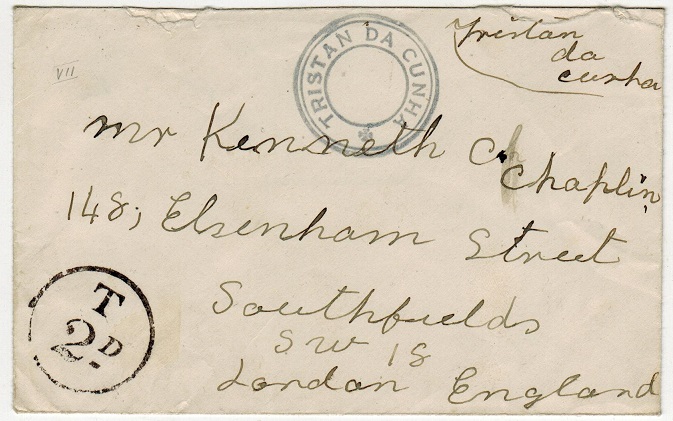 Tristan
da
cunha
TRISTAN DA CUNHA
VII
Mr Kenneth Ch
Chaplin,
148, Elsenham Street
Southfields
SW 18
London England
T
2D